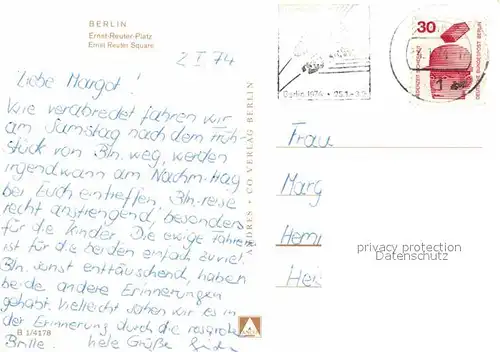 BERLIN
Ernst-Reuter-Platz
Ernst Reuter Square
2 I 74
Liebe Margot!
Wie verabredet fahren wir
am Samstag nach dem Früh-
stück von Bln. weg, werden
irgendwann am Nachm.ittag
bei Euch eintreffen. Bln-reise
recht anstrengend, besonders
für die Kinder. Die ewige Fahrerei
ist für die beiden einfach zu viel.
Bln. sonst enttäuschend, haben
beide andere Erinnerungen
gehabt. Vielleicht sahen wir es in
der Erinnerung durch die rosarote
Brille. Viele Grüße
B 1/4178
ANDRES + CO VERLAG BERLIN
Berlin 1974 • 25.1.-3.2.
30
DEUTSCHE BUNDESPOST BERLIN
Frau
Marg
Hem
Hei
privacy protection
Datenschutz